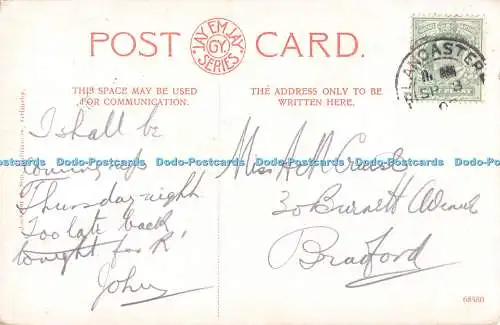 POST CARD.
JAY EM JAY
GY.
SERIES
THIS SPACE MAY BE USED
FOR COMMUNICATION.
THE ADDRESS ONLY TO BE
WRITTEN HERE.
LANCASTER
I shall be
coming up
Thursday-night
Too late back
tonight for R.
John
Miss A
30 Burnett Avenue
Bradford
68580
Dodo-Postcards Dodo-Postcards Dodo-Postcards Dodo-Postcards Dodo-Postcards